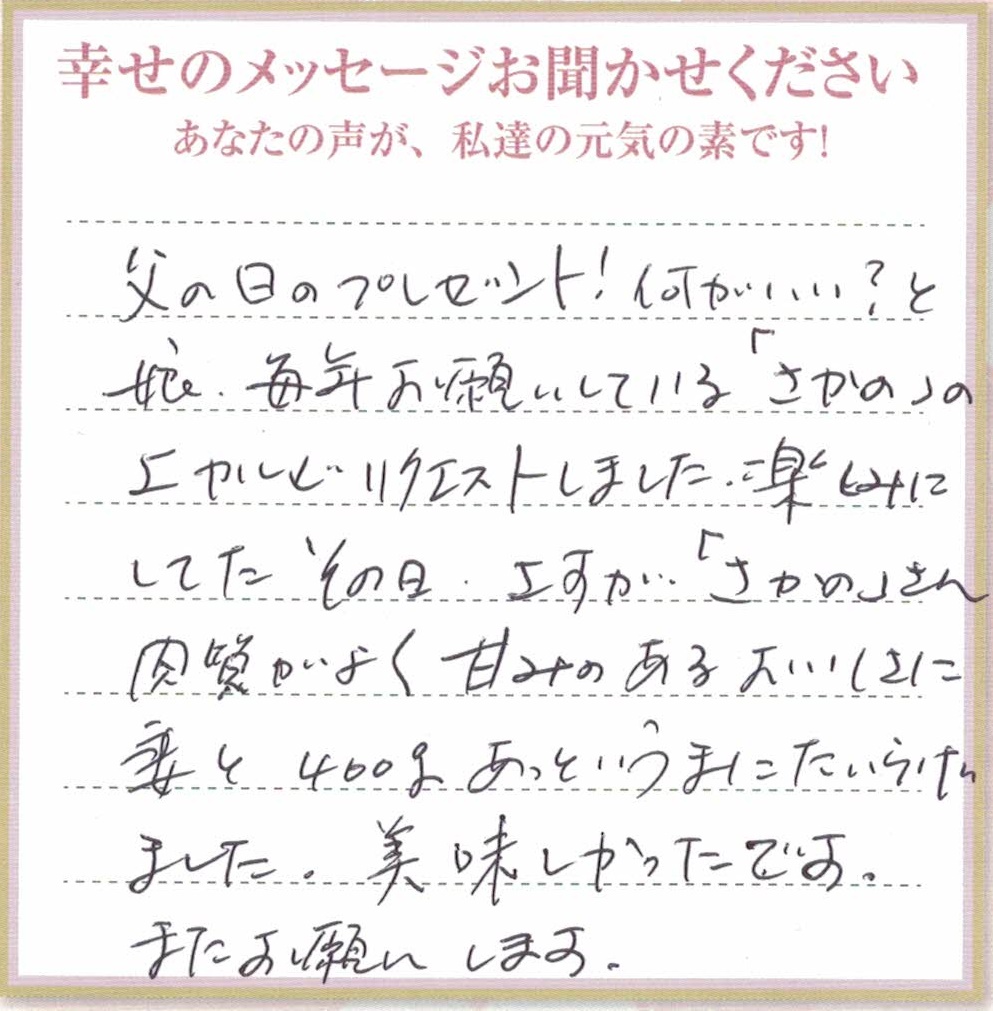 幸せのメッセージお聞かせください
あなたの声が、私達の元気の素です!
父の日のプレゼント!何がいい?と
娘.毎年お願いしている「さかの」の
上カルビリクエストしました.楽しみに
してたその日.さすが..「さかの」さん
肉質がよく甘みのあるおいしさに
妻と400gあっというまにたいらげ
ました.美味しかったです.
またお願いします.